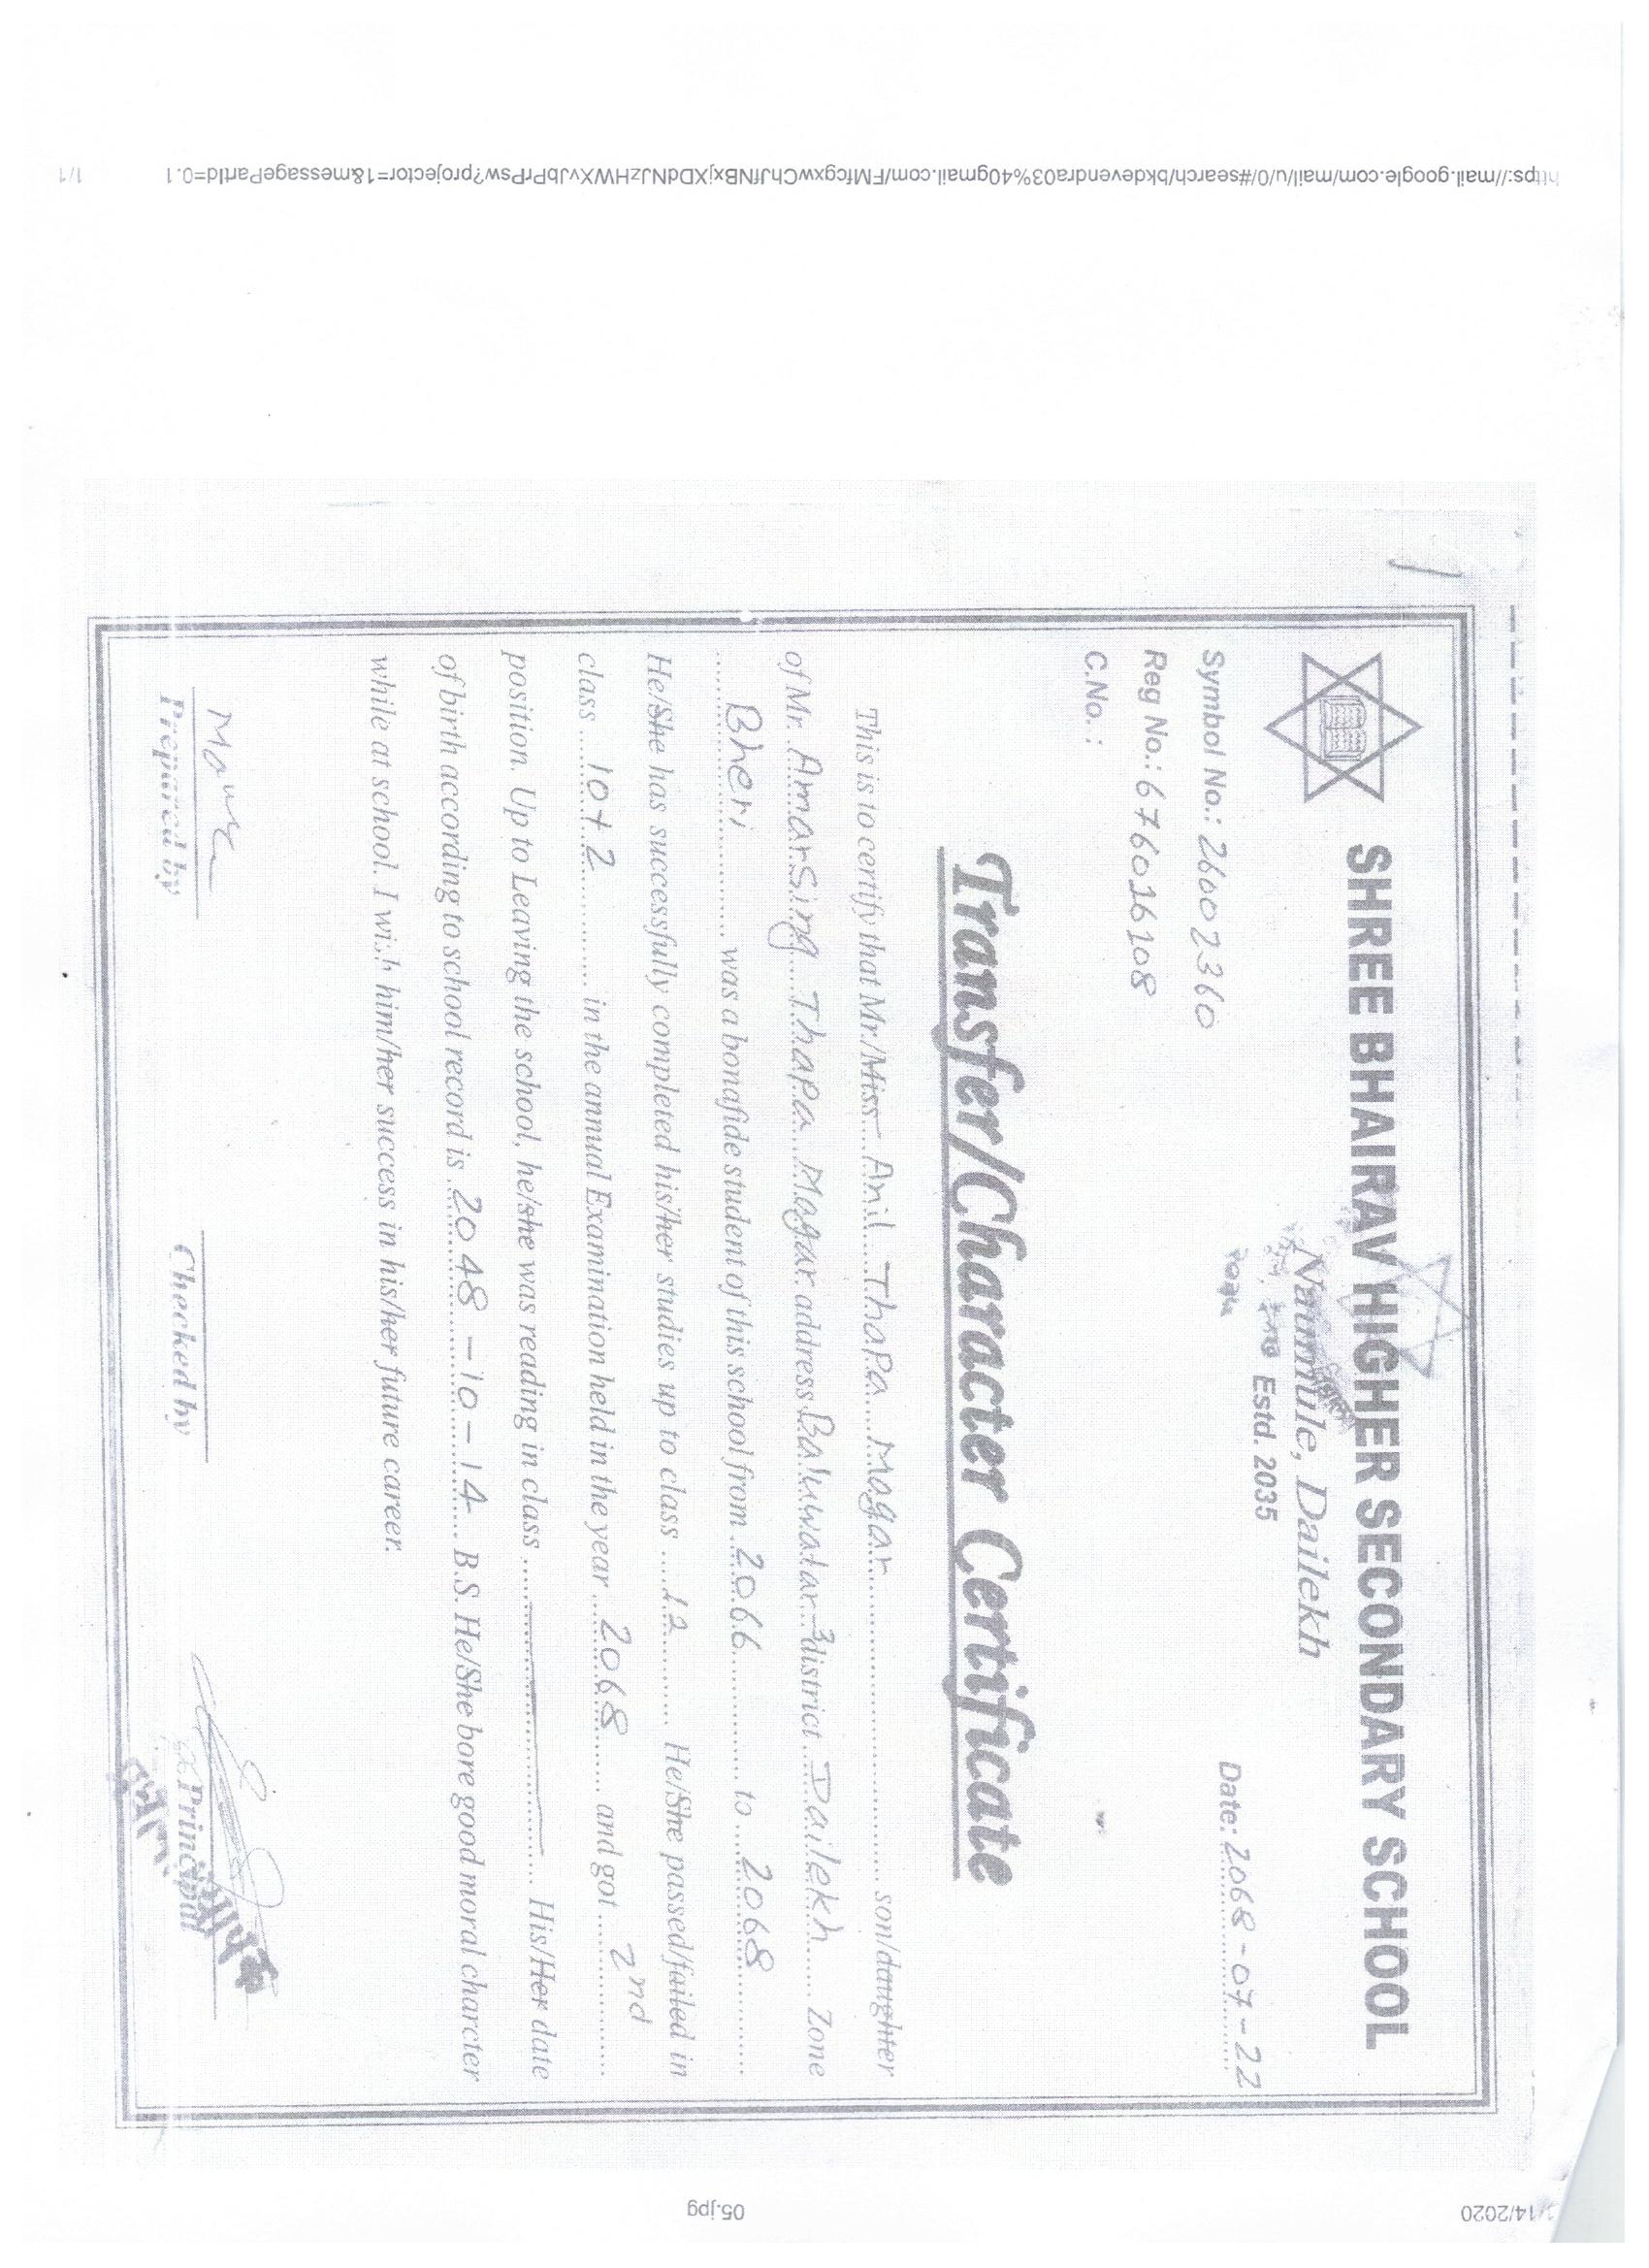 SHREE BHAIRAV HIGHER SECONDARY SCHOOL
Naumule, Dailekh
Estd. 2035
Symbol No.: 26002360
Date: 2068-07-22
Reg No.: 676016108
C.No. :
Transfer/Character Certificate
This is to certify that Mr./Miss Anil Thapa Magar son/daughter
of Mr. Amarsing Thapa Magar address Baluwatar-3 district Dailekh Zone
Bheri was a bonafide student of this school from 2066 to 2068
He/She has successfully completed his/her studies up to class 12 He/She passed/failed in
class 10+2 in the annual Examination held in the year 2068 and got 2nd
position. Up to Leaving the school, he/she was reading in class His/Her date
of birth according to school record is 2048-10-14 B.S. He/She bore good moral character
while at school. I wish him/her success in his/her future career.
Prepared by
Checked by
Principal
/14/2020
05.jpg
https://mail.google.com/mail/u/0/#search/bkdevendra03%40gmail.com/FMfcgxwChJfNBxjXDdNJzHWXvJbPrdqPsw?projector=1&messagePartId=0.1
1/1